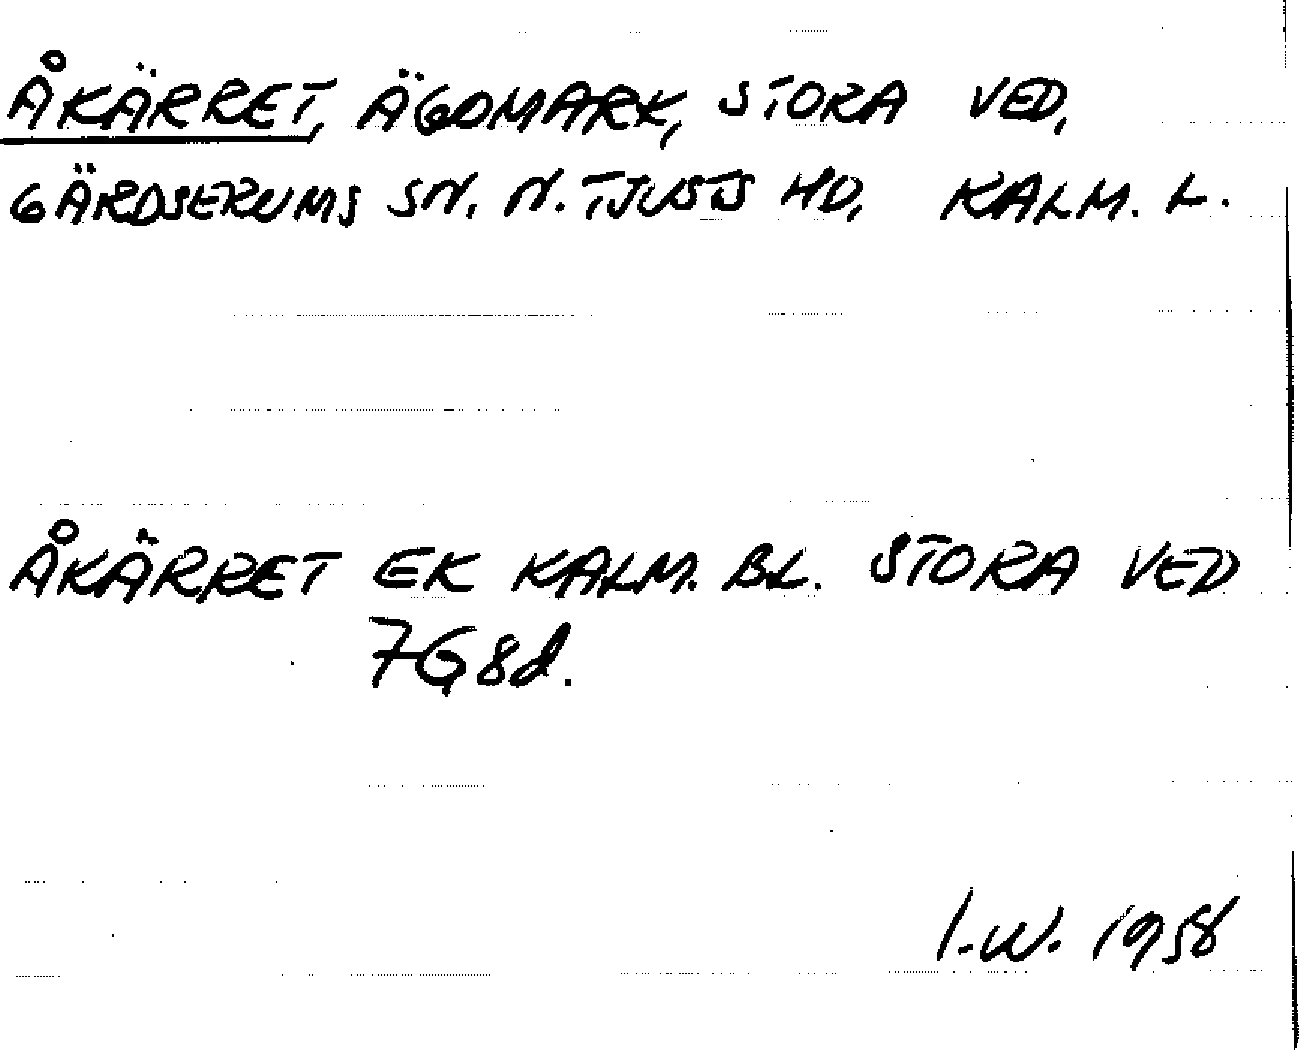 ÅKÄRRET, ÄGOMARK, STORA VED,
GÄRDSERUMS SN. N. TJUSTS HD, KALM. L.
ÅKÄRRET EK KALM. BL. STORA VED
7G8d.
I.W. 1958